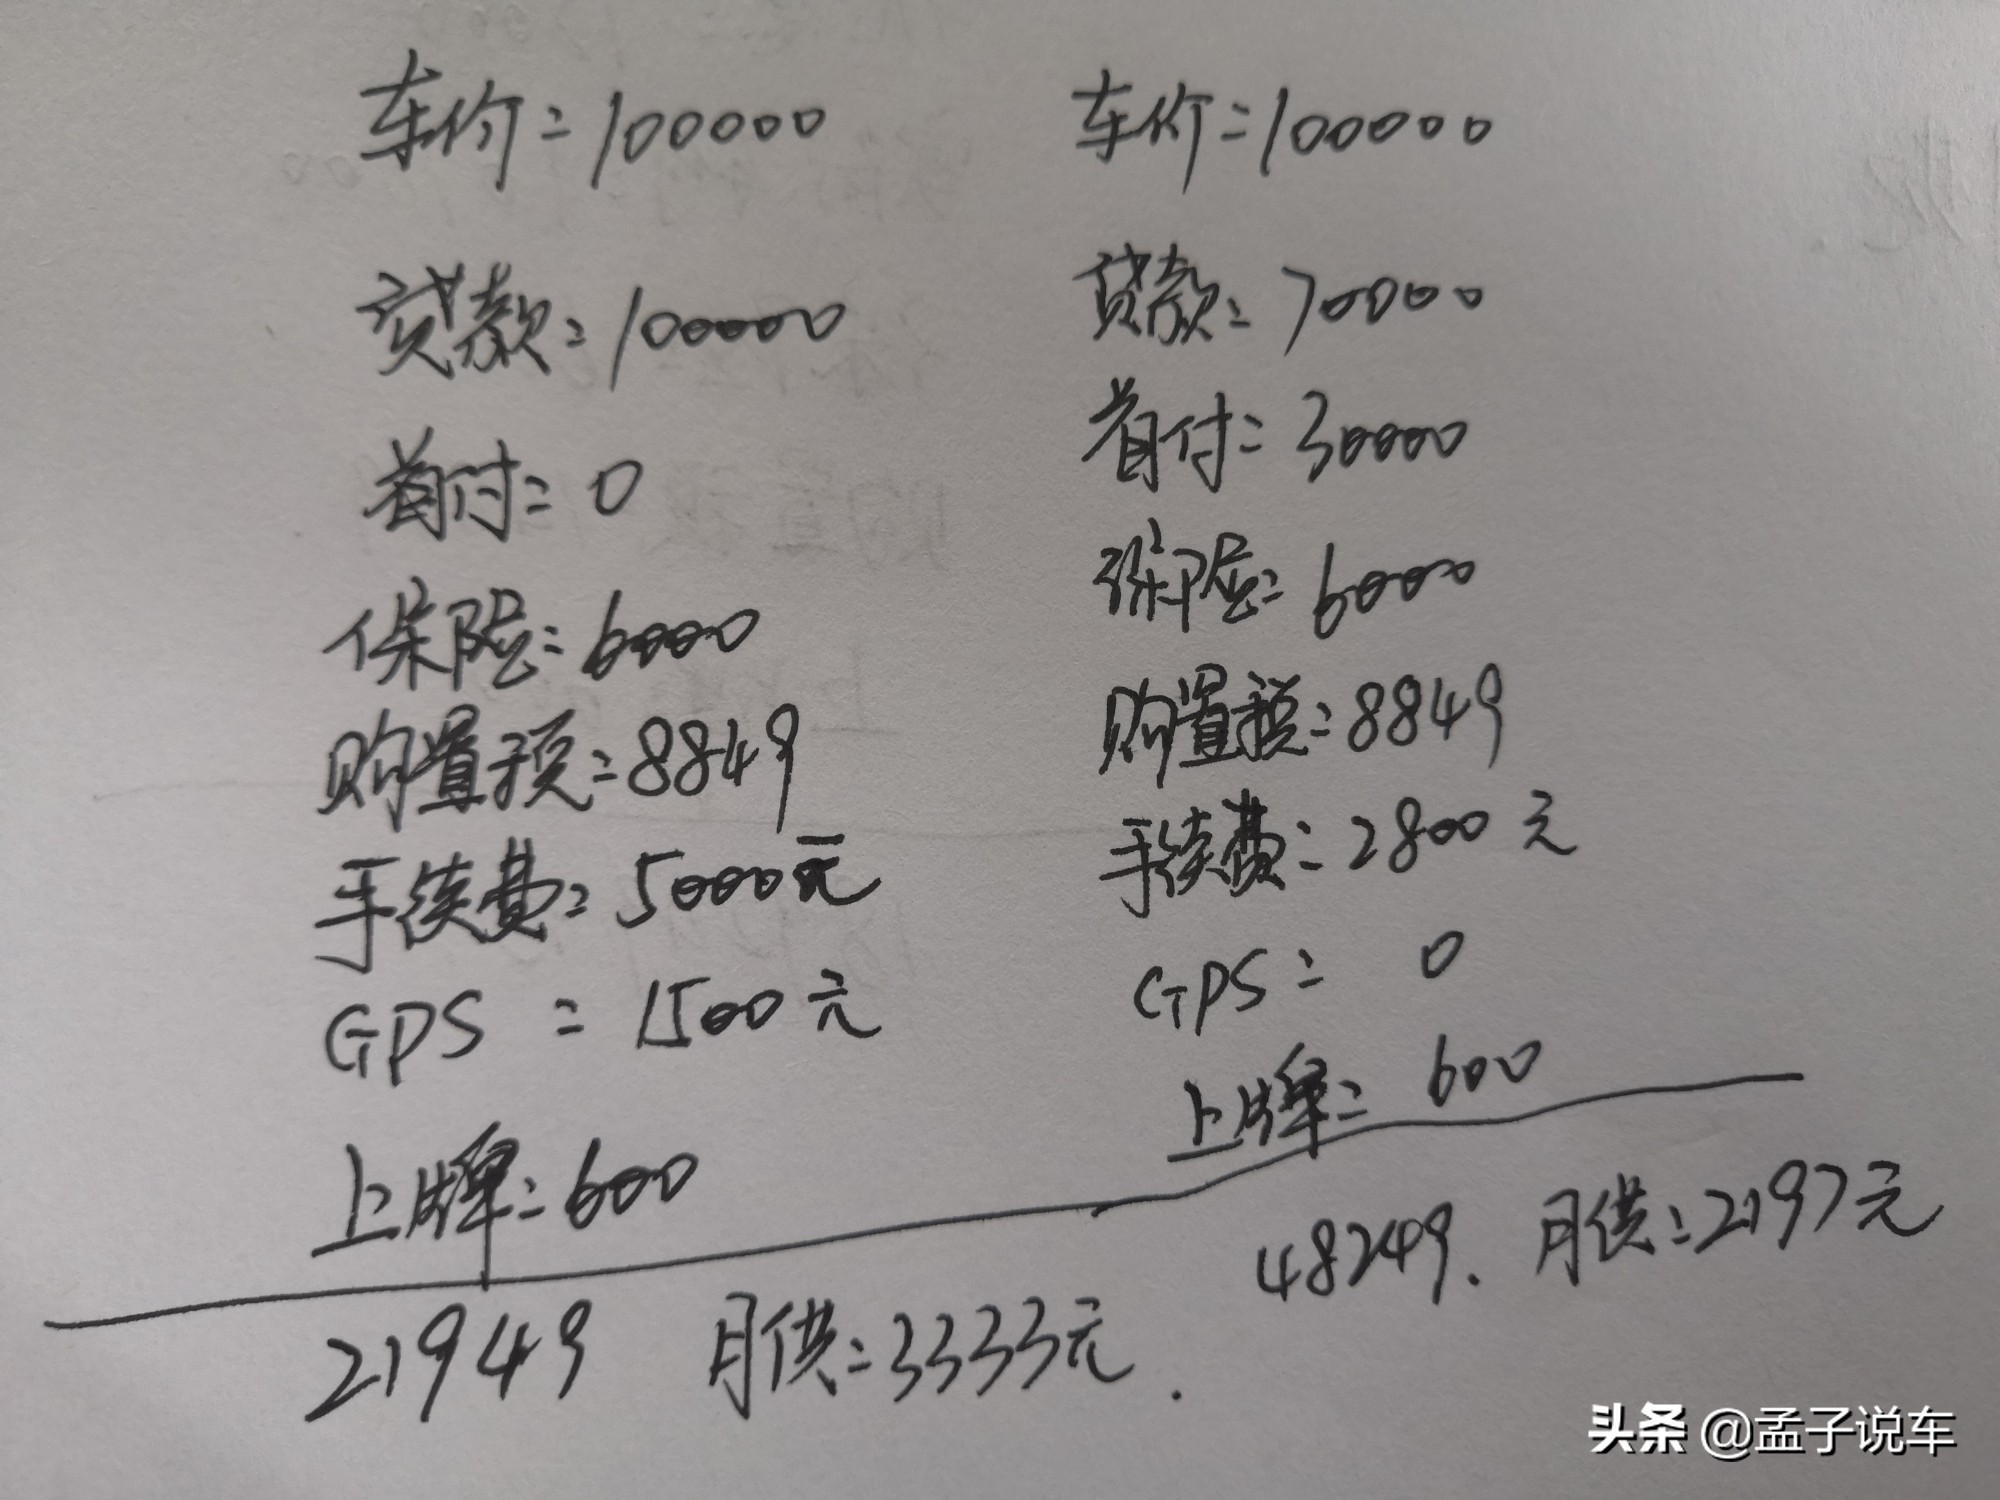 车价=100000
贷款=100000
首付=0
保险=6000
购置税=8849
手续费=5000元
GPS=1500元
上牌=600
21949 月供=3333元.
车价=100000
贷款=70000
首付=30000
保险=6000
购置税=8849
手续费=2800元
GPS=0
上牌=600
48249. 月供=2197元
头条 @孟子说车